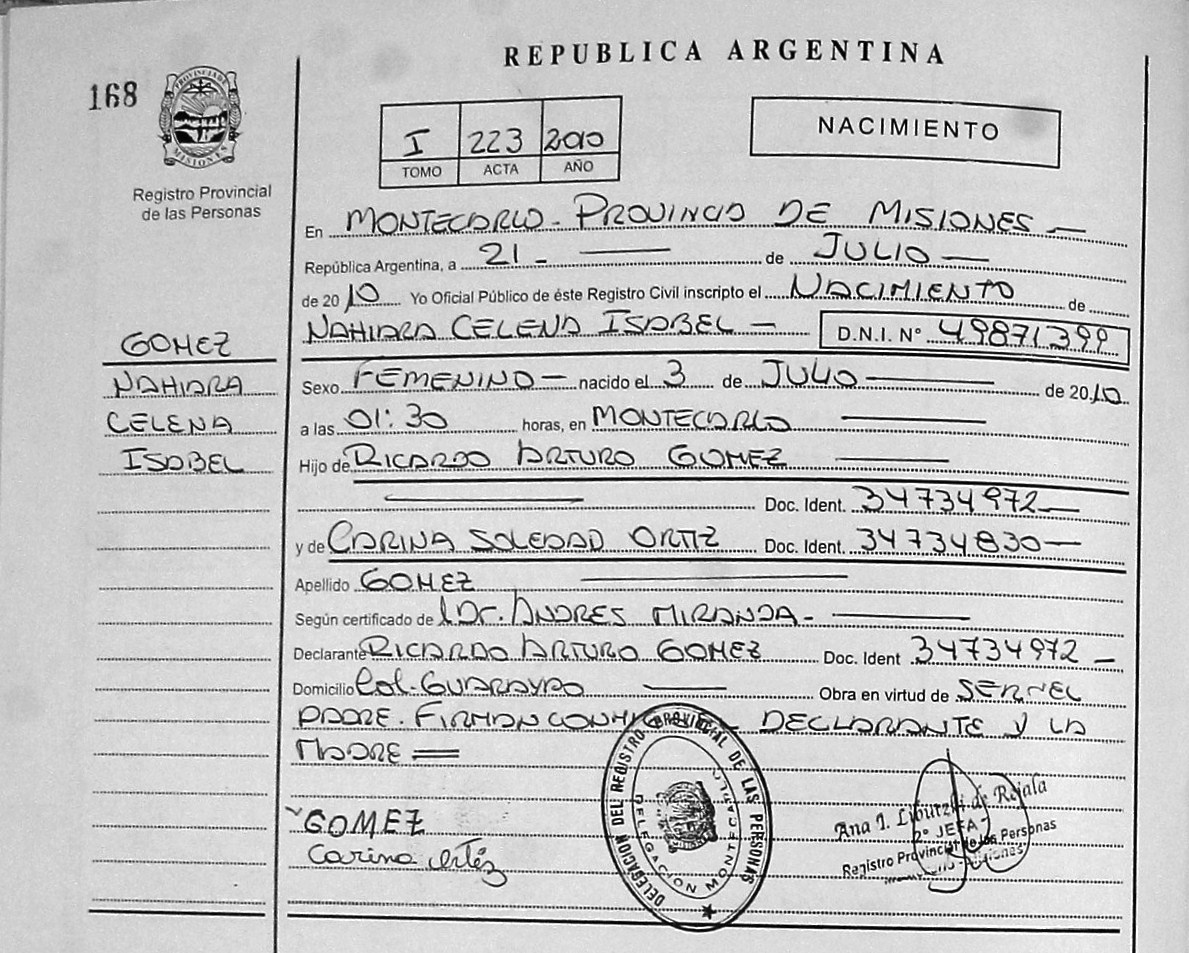 REPUBLICA ARGENTINA
168
PROVINCIA DE MISIONES
Registro Provincial
de las Personas
I 223 2010
TOMO ACTA AÑO
NACIMIENTO
En MONTECARLO - PROVINCIA DE MISIONES —
República Argentina, a 21 - — de JULIO —
de 2010 Yo Oficial Público de éste Registro Civil inscripto el NACIMIENTO de
NAHIARA CELENA ISABEL — D.N.I. N° 49871399
GOMEZ
NAHIARA
CELENA
ISABEL
Sexo FEMENINO — nacido el 3 de JULIO — de 2010
a las 01:30 horas, en MONTECARLO —
Hijo de RICARDO ARTURO GOMEZ —
— Doc. Ident. 34734972 —
y de CARINA SOLEDAD ORTIZ Doc. Ident. 34734830 —
Apellido GOMEZ —
Según certificado de Dr. ANDRES MIRANDA - —
Declarante RICARDO ARTURO GOMEZ Doc. Ident 34734972 —
Domicilio Col. GUARAYPO — Obra en virtud de SER EL
PADRE. FIRMAN CONMIGO DECLARANTE Y LA
MADRE =
GOMEZ
Carina Ortiz
DELEGACION DEL REGISTRO PROVINCIAL DE LAS PERSONAS
DELEGACION MONTECARLO
Ana I. de Rejala
2° JEFA -
Registro Provincial de las Personas
Misiones